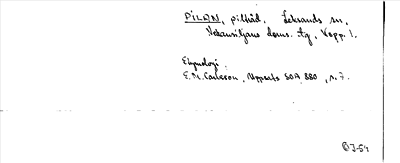 PILAN, pilhåd. Lekrands sn,
Vetansiljans doms. tg, Kopp. l.
Etymologi.
E.N. Carlsson, Uppsats SOA 880, s. 7.
J-54